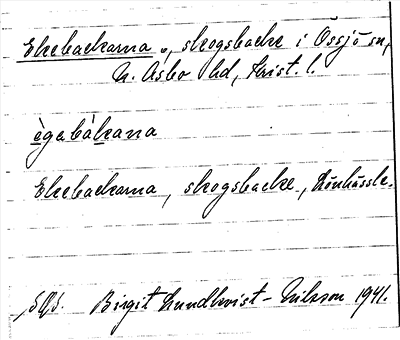 Ekebackarna, skogsbacke i Össjö sn,
N. Åsbo hd, Krist. l.
ègabàkana
Ekebackarna, skogsbacke, Lönhässle.
Birgit Lundkvist - Nilsson 1941.